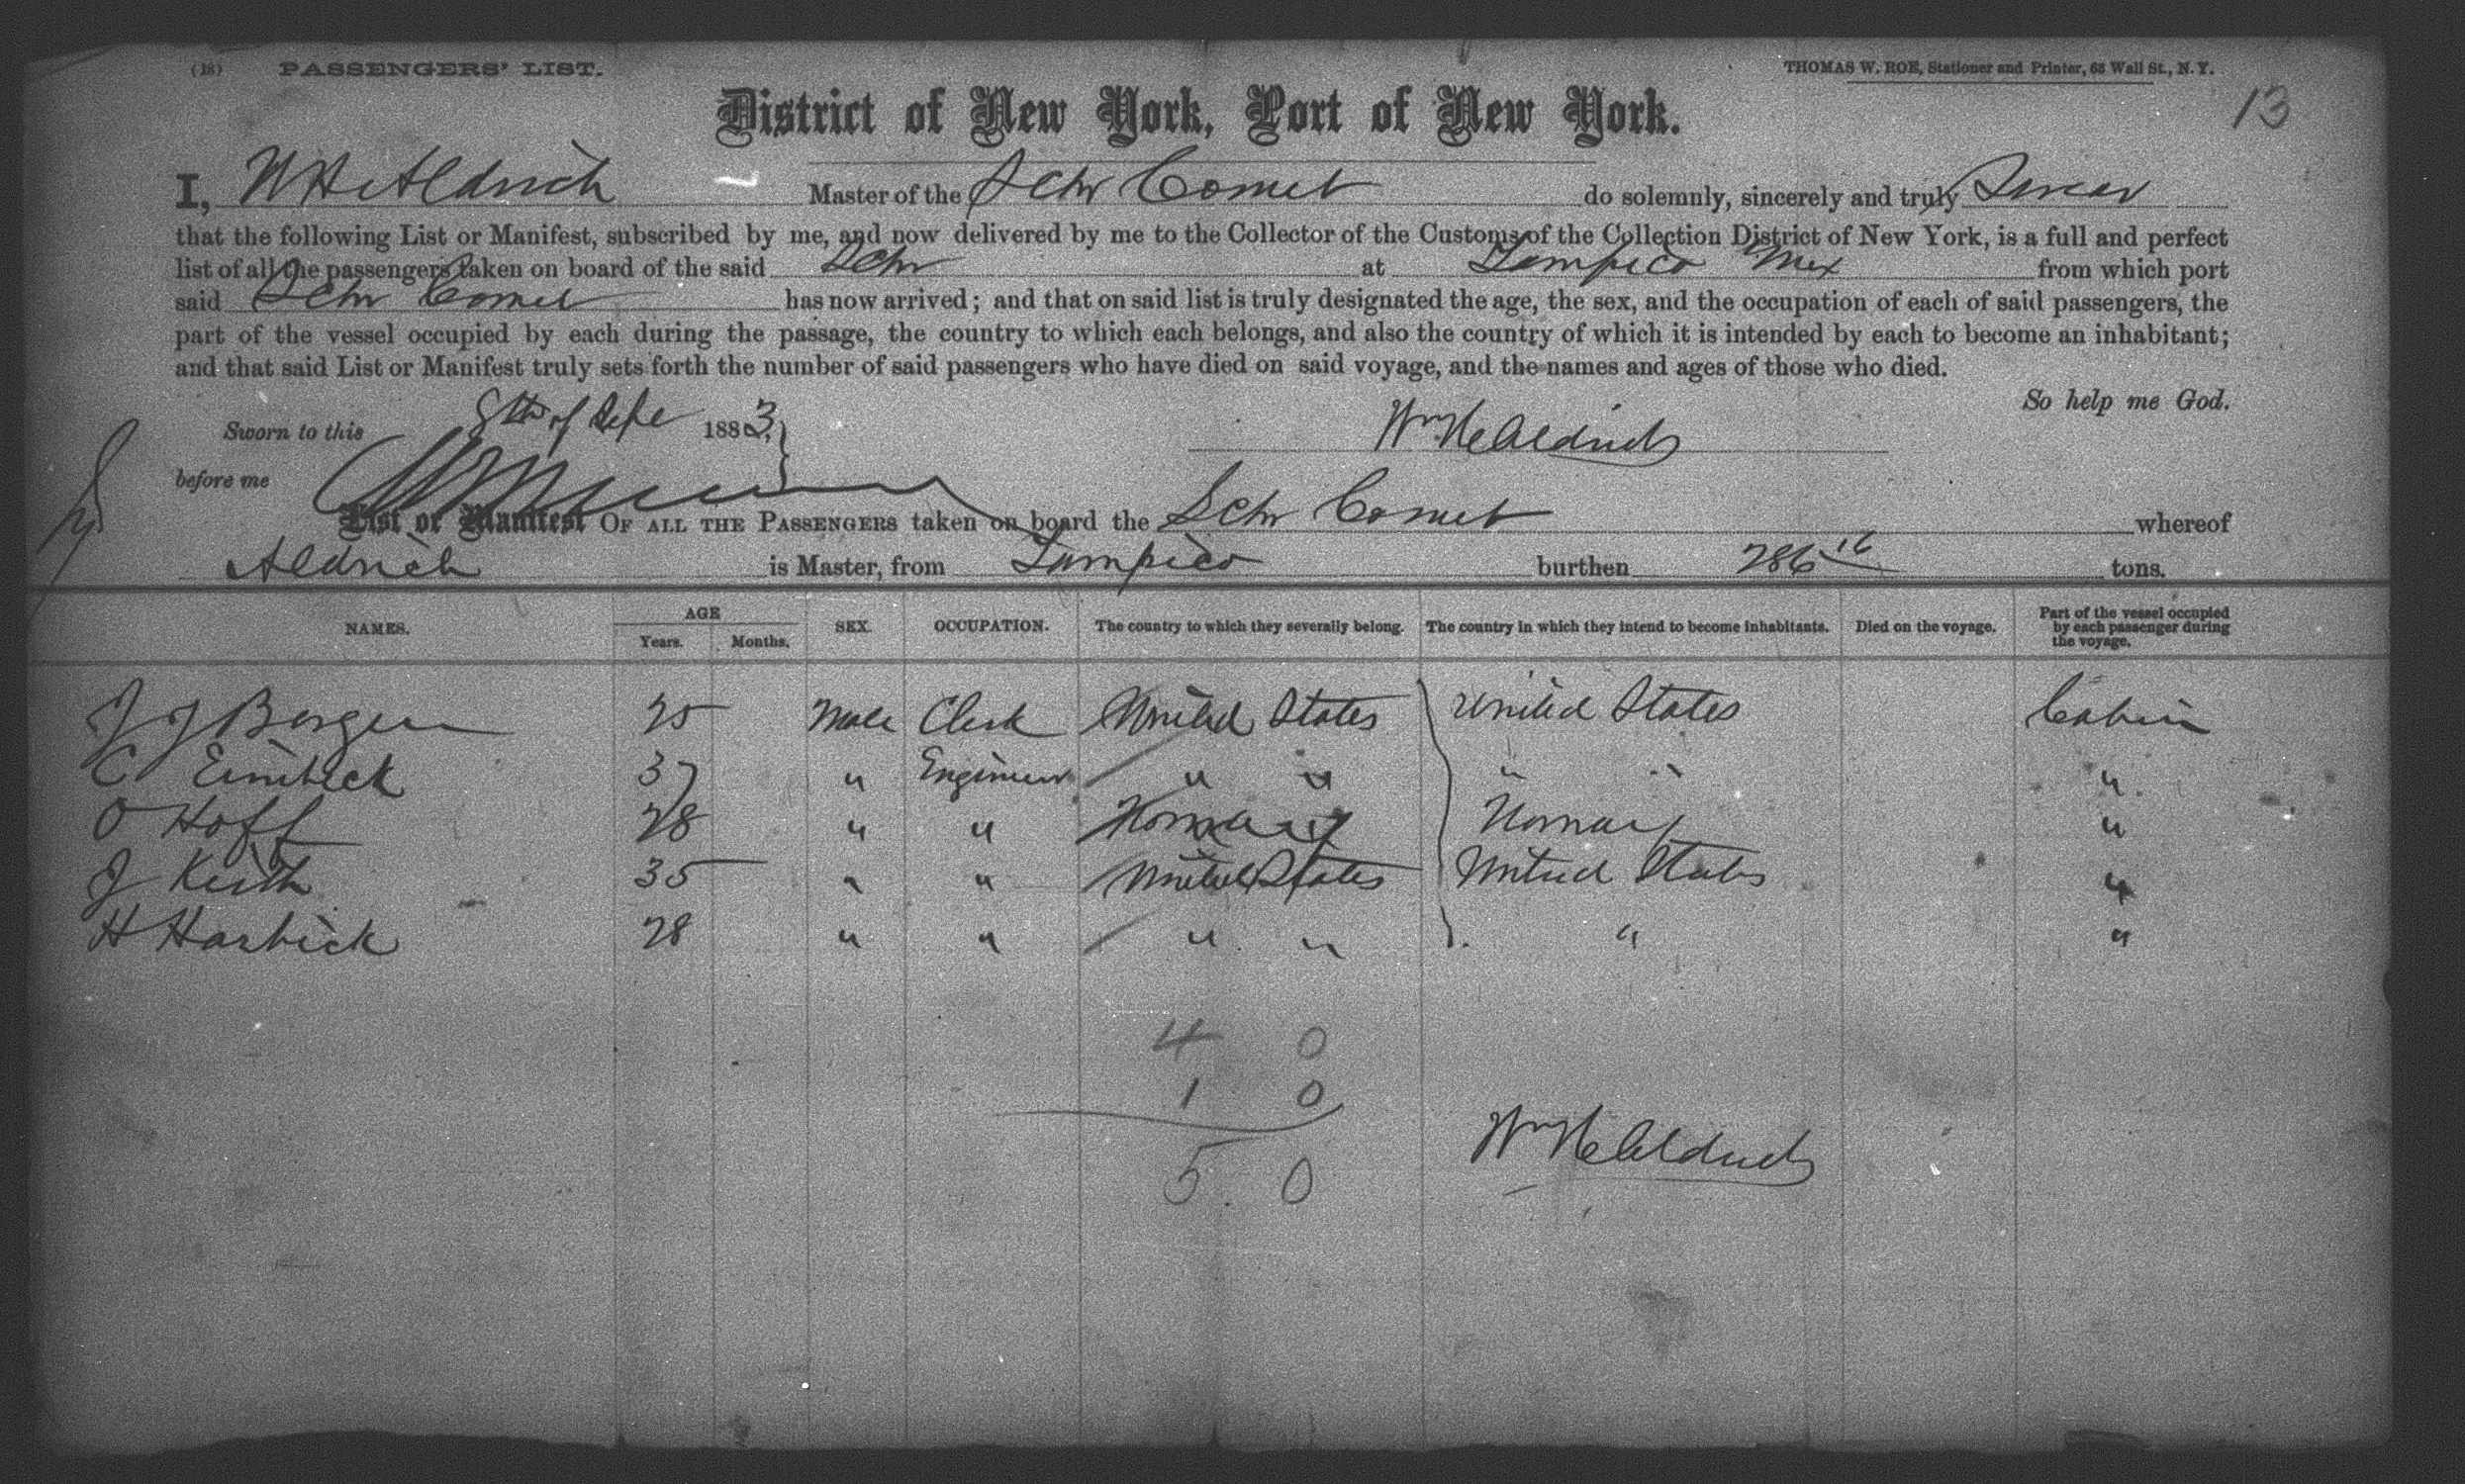 (18) PASSENGERS' LIST.
THOMAS W. ROE, Stationer and Printer, 63 Wall St., N. Y.
13
District of New York, Port of New York.
I, W H Aldrich Master of the Schr Comet do solemnly, sincerely and truly Swear
that the following List or Manifest, subscribed by me, and now delivered by me to the Collector of the Customs of the Collection District of New York, is a full and perfect
list of all the passengers taken on board of the said Schr at Tampico Mex from which port
said Schr Comet has now arrived; and that on said list is truly designated the age, the sex, and the occupation of each of said passengers, the
part of the vessel occupied by each during the passage, the country to which each belongs, and also the country of which it is intended by each to become an inhabitant;
and that said List or Manifest truly sets forth the number of said passengers who have died on said voyage, and the names and ages of those who died.
So help me God.
Sworn to this 8th of Sept 1883,
Wm H Aldrich
before me
List or Manifest OF ALL THE PASSENGERS taken on board the Schr Comet whereof
Aldrich is Master, from Tampico burthen 286 16 tons.
NAMES. AGE Years. Months. SEX. OCCUPATION. The country to which they severally belong. The country in which they intend to become inhabitants. Died on the voyage. Part of the vessel occupied by each passenger during the voyage.
J J Borgen 25 Male Clerk United States United States Cabin
C Eimbeck 37 " Engineer " " " " "
O Hoff 28 " " Norway Norway "
J Keith 35 " " United States United States "
H Harbick 28 " " " " " "
4 0
1 0
5 0
Wm H Aldrich